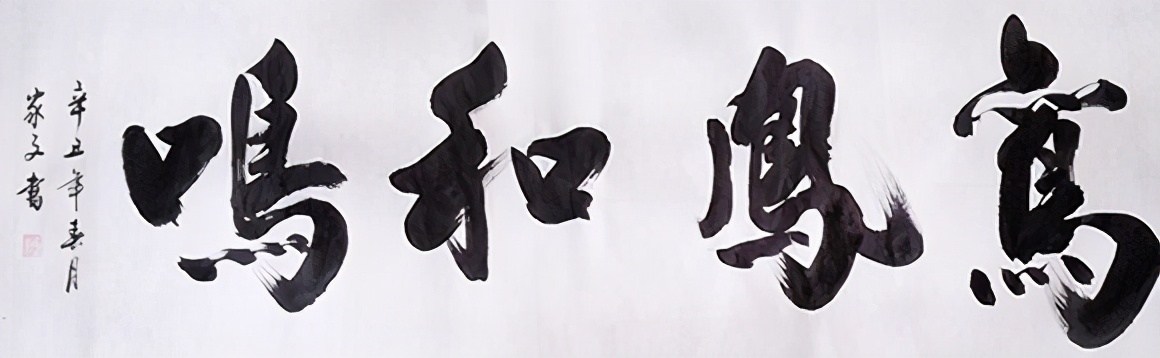 鸞鳳和鳴
辛丑年春月
家文書